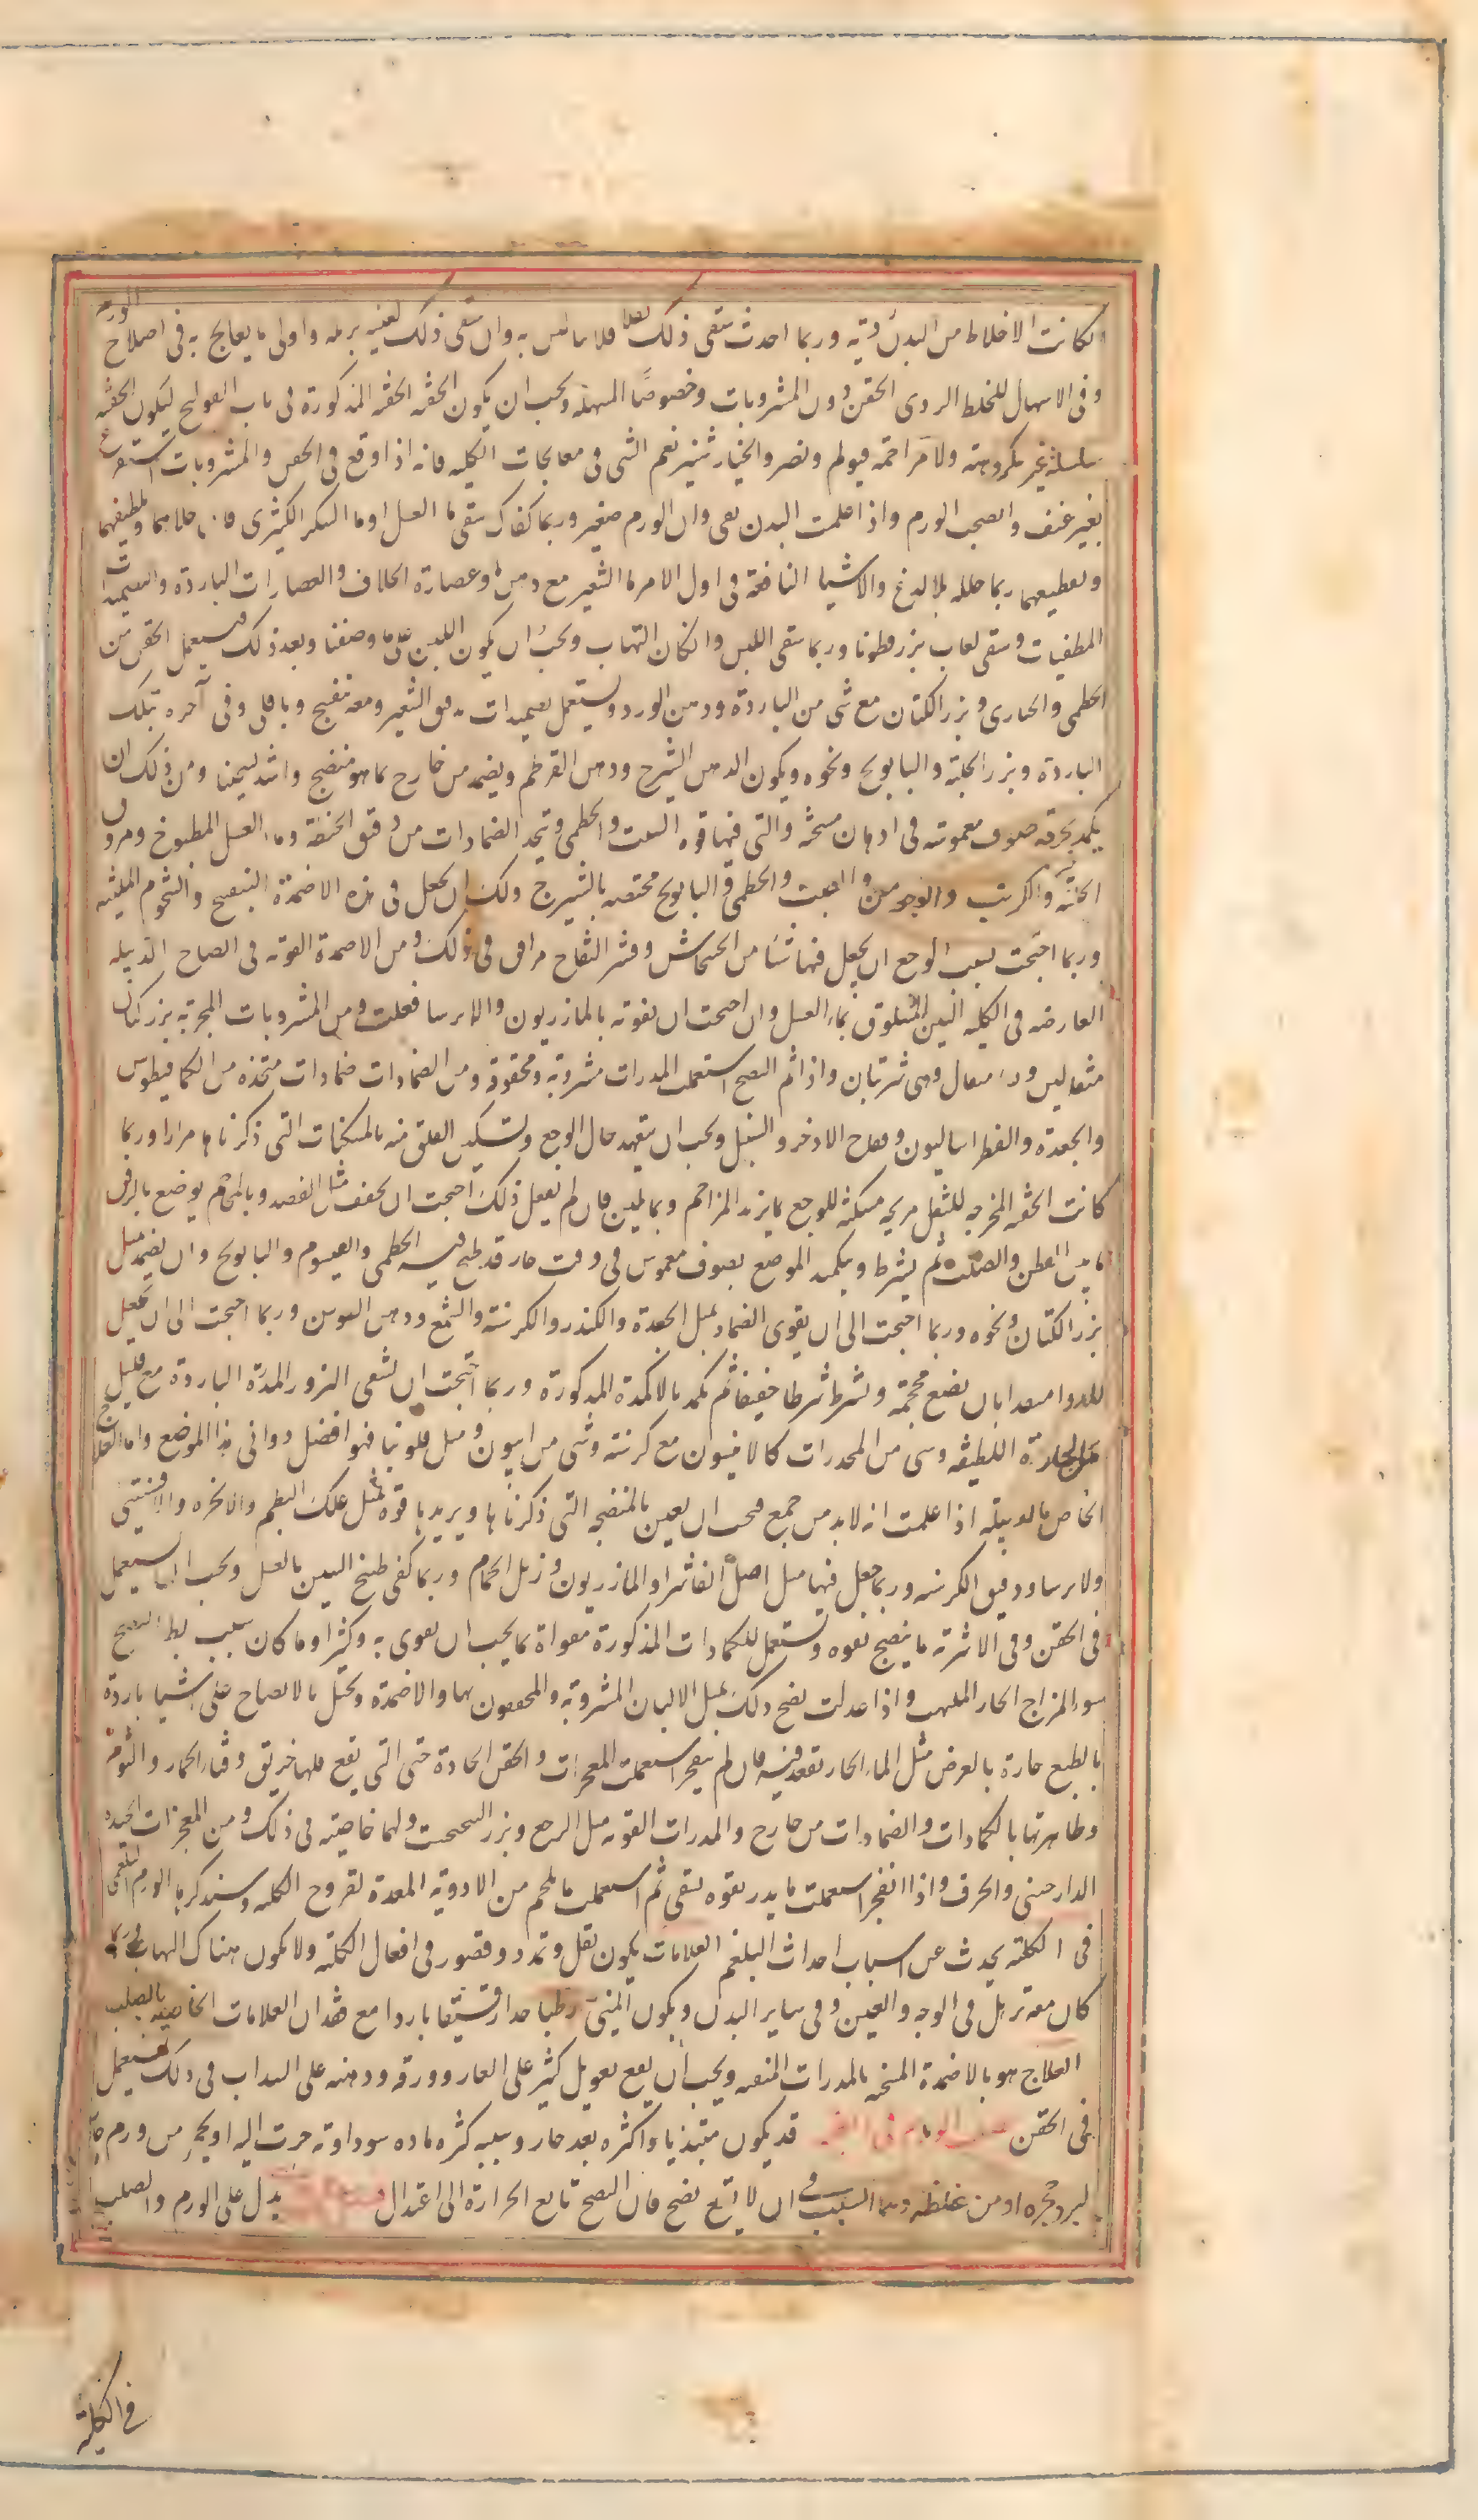 كانت الاخلاط من البدن ردية وربما احدث سقى ذلك فلا باس به وان سقى ذلك واولى ما يعالج به فى اصلاح الورم
وفى الاسهال للخلط الردى الحقن دون المشروبات وخصوصًا المسهلة ويجب ان يكون الحقنه الحقنه المذكورة فى باب القولنج ليكون الحقنه
سلسلة غير مكروهة ولا مزاحمة فيولم ويضر والخيارشنبر نعم الشى فى معالجات الكليه فانه اذا وقع فى الحقن والمشروبات استفرغ
بغير عنف وانضج الورم واذا علمت البدن نقى وان الورم صغير وربما كفاك سقى ما العسل او ما السكر الكثيرى فان جلاهما وتلطيفهما
وتقطيعهما ربما حلله بلا لدغ والاشيا النافعة فى اول الامر ما الشعير مع دهن وعصارة الخلاف والعصارات الباردة والتضميدات
المطفيات وسقى لعاب بزر قطونا وربما سقى اللبن وانكان التهاب ويجب ان يكون اللبن على ما وصفنا وبعد ذلك فيستعمل الحقن من
الخطمى والخبازى وبزر الكتان مع شى من الباردة ودهن الورد ويستعمل تضميدات دقيق الشعير ومعه بنفسج وباقلى وفى آخره تترك
الباردة وبزر الحلبة والبابونج ونحوه ويكون الدهن الشيرج ودهن القرطم ويضمد من خارج بما هو منضج واشد تسخينا ومن ذلك ان
يكمد بخرقه صوف مغموسه فى ادهان مسخنة والتى فيها قوه الشبت والخطمى وتتخذ الضمادات من دقيق الحنطة وما العسل المطبوخ ومن ورق
الكرنب والخطمى والبابونج مختصه بالشيرج ولك ان تجعل فى هذه الاضمدة البنفسج والشحوم الملينه
وربما احتجت لسبب الوجع ان يجعل فيها شيا من الخشخاش وقشر اللفاح مرافق فى ذلك ومن الاضمدة القويه فى انضاج الدبيله
العارضه فى الكليه التين المسلوق بماء العسل وان احتجت ان تقويه بالمازريون والايرسا فعلت ومن المشروبات المجربة بزر كتان
مثقالين ونشا مثقال وهى شربتان واذا تم النضج استعملت المدرات مشروبة ومحقونة ومن الضمادات ضمادات متخذه من الكمافيطوس
والجعدة والفطراساليون وفقاح الاذخر والسنبل ويجب ان يتعهد حال الوجع وتسكين القلق منه بالمسكنات التى ذكرناها مرارا وربما
كانت الحقنه المخرجه للثفل مريحه مسكنه للوجع بما يزيد المزاحم وبما تلين فان لم يفعل ذلك احتجت ان تخفف مثل الفصد وبالمحاجم يوضع بالرفق
ما بين القطن والصلب ثم يشرط ويكمد الموضع بصوف مغموس فى زيت حار قد طبخ فيه الخطمى والقيسوم والبابونج وان يضمد مثل
بزر الكتان ونحوه وربما احتجت الى ان يقوى الضماد بمثل الجعدة والكندر والكرسنة والشمع ودهن السوسن وربما احتجت الى ان تجعل
للدوا منفذا بان يضع محجمة ويشرط شرطا خفيفا ثم يكمد بالاكمدة المذكورة وربما احتجت ان تسقى البزور المدرة الباردة مع قليل
من الحارة اللطيفه وشى من المخدرات كالافيون مع كرسنة وشى من افيون ومثل فلونيا فهو افضل دوا فى هذا الموضع واما العلاج
الخاص بالدبيلة اذا علمت انه لا بد من جمع فيجب ان يعين بالمنضجه التى ذكرناها ويزيدها قوة مثل علك البطم والانجره والافسنتين
والايرسا ودقيق الكرسنه وربما جعل فيها مثل اصل الفاشرا والمازريون وزبل الحمام وربما كفى طبيخ التين بالعسل ويجب ان يستعمل
فى الحقن وفى الاشربة ما ينضج بقوه ويستعمل الكمادات المذكورة مقواة بما يجب ان تقوى به وكثيرا ما كان سبب بطء النضج
سوء المزاج الحار الملهب واذا عدلت نضج ذلك بمثل الالبان المشروبة والمحقون بها والاضمدة وتحيل بالانضاج على اشيا باردة
بالطبع حارة بالعرض مثل الماء الحار تقعد فيه فان لم ينفجر استعملت المفجرات والحقن الحادة حتى التى يقع فيها خربق وقثاء الحمار والثوم
وظاهرتها بالكمادات والضمادات من خارج والمدرات القويه مثل الوج وبزر الفنجنكشت ولها خاصية فى ذلك ومن المفجرات الجيده
الدارصينى والحرف واذا انفجر استعملت ما يدر بقوه لتنقى ثم استعملت ما يلحم من الادوية المعدة لقروح الكليه وسنذكرها الورم البلغمى
فى الكلية يحدث عن اسباب احداث البلغم العلامات يكون ثقل وتمدد وقصور فى افعال الكلية ولا يكون هناك التهاب وربما
كان معه تربل فى الوجه والعين وفى ساير البدن ويكون المنى رطبا جدا رقيقا باردا مع فقدان العلامات الخاصيه بالصلب
العلاج هو بالاضمدة المسخنه بالمدرات المنقيه ويجب ان يقع تعويل كثير على الغار وورقه ودهنه على السداب فى ذلك فيستعمل
فى الحقن قد يكون مبتديا واكثره بعد حار وسببه كثره ماده سوداوية جرت اليه او تحجر من ورم حار
لبرد حجره او من غلظه وهما السبب فى ان لا يتبع نضج فان النضج تابع الحرارة الى اعتدال يدل على الورم والصلب
فى الكلية